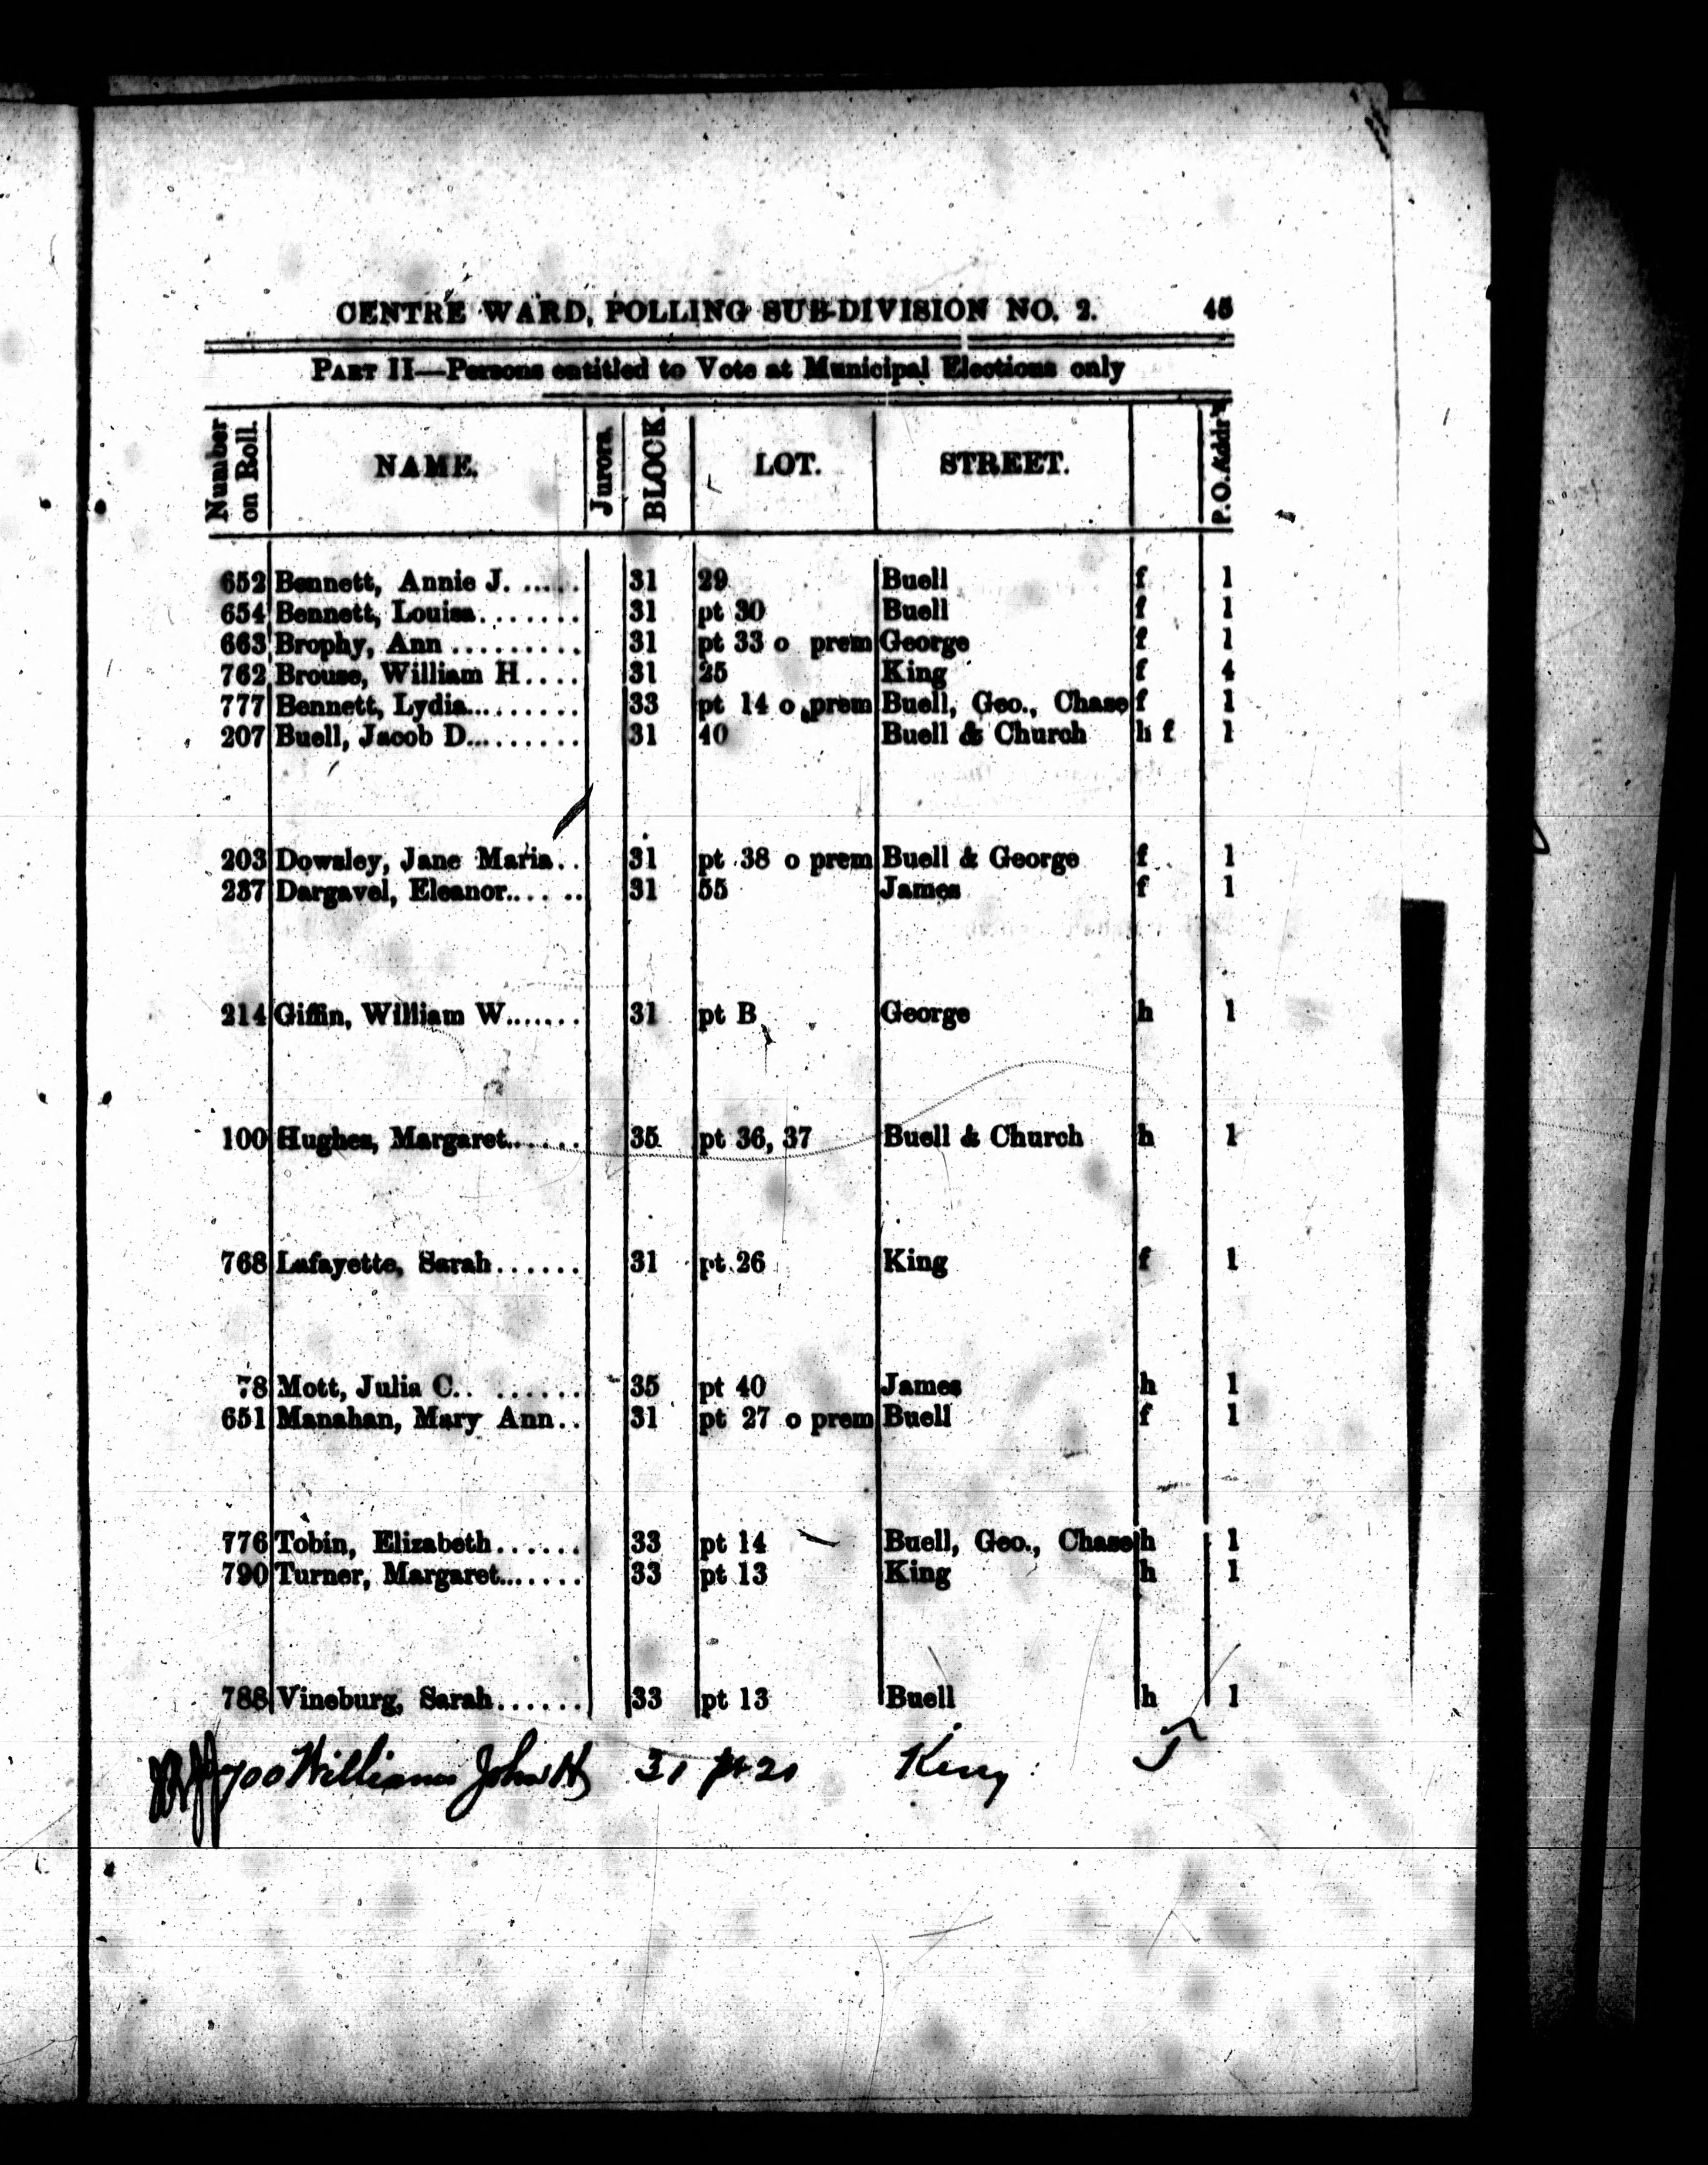 CENTRE WARD, POLLING SUB-DIVISION NO. 2. 45
PART II—Persons entitled to Vote at Municipal Elections only
Number on Roll. NAME. Jurors. BLOCK. LOT. STREET. P.O. Addr's
652 Bennett, Annie J. ..... 31 29 Buell f 1
654 Bennett, Louisa....... 31 pt 30 Buell f 1
663 Brophy, Ann ......... 31 pt 33 o prem George f 1
762 Brouse, William H.... 31 25 King f 4
777 Bennett, Lydia......... 33 pt 14 o prem Buell, Geo., Chase f 1
207 Buell, Jacob D......... 31 40 Buell & Church h f 1
203 Dowsley, Jane Maria.. 31 pt 38 o prem Buell & George f 1
237 Dargavel, Eleanor...... .. 31 55 James f 1
214 Giffin, William W....... 31 pt B George h 1
100 Hughes, Margaret....... 35 pt 36, 37 Buell & Church h 1
768 Lafayette, Sarah...... 31 pt 26 King f 1
78 Mott, Julia C.. ...... 35 pt 40 James h 1
651 Manahan, Mary Ann.. 31 pt 27 o prem Buell f 1
776 Tobin, Elizabeth...... 33 pt 14 Buell, Geo., Chase h 1
790 Turner, Margaret....... 33 pt 13 King h 1
788 Vineburg, Sarah...... 33 pt 13 Buell h 1
700 Williams John H 31 pt 21 King